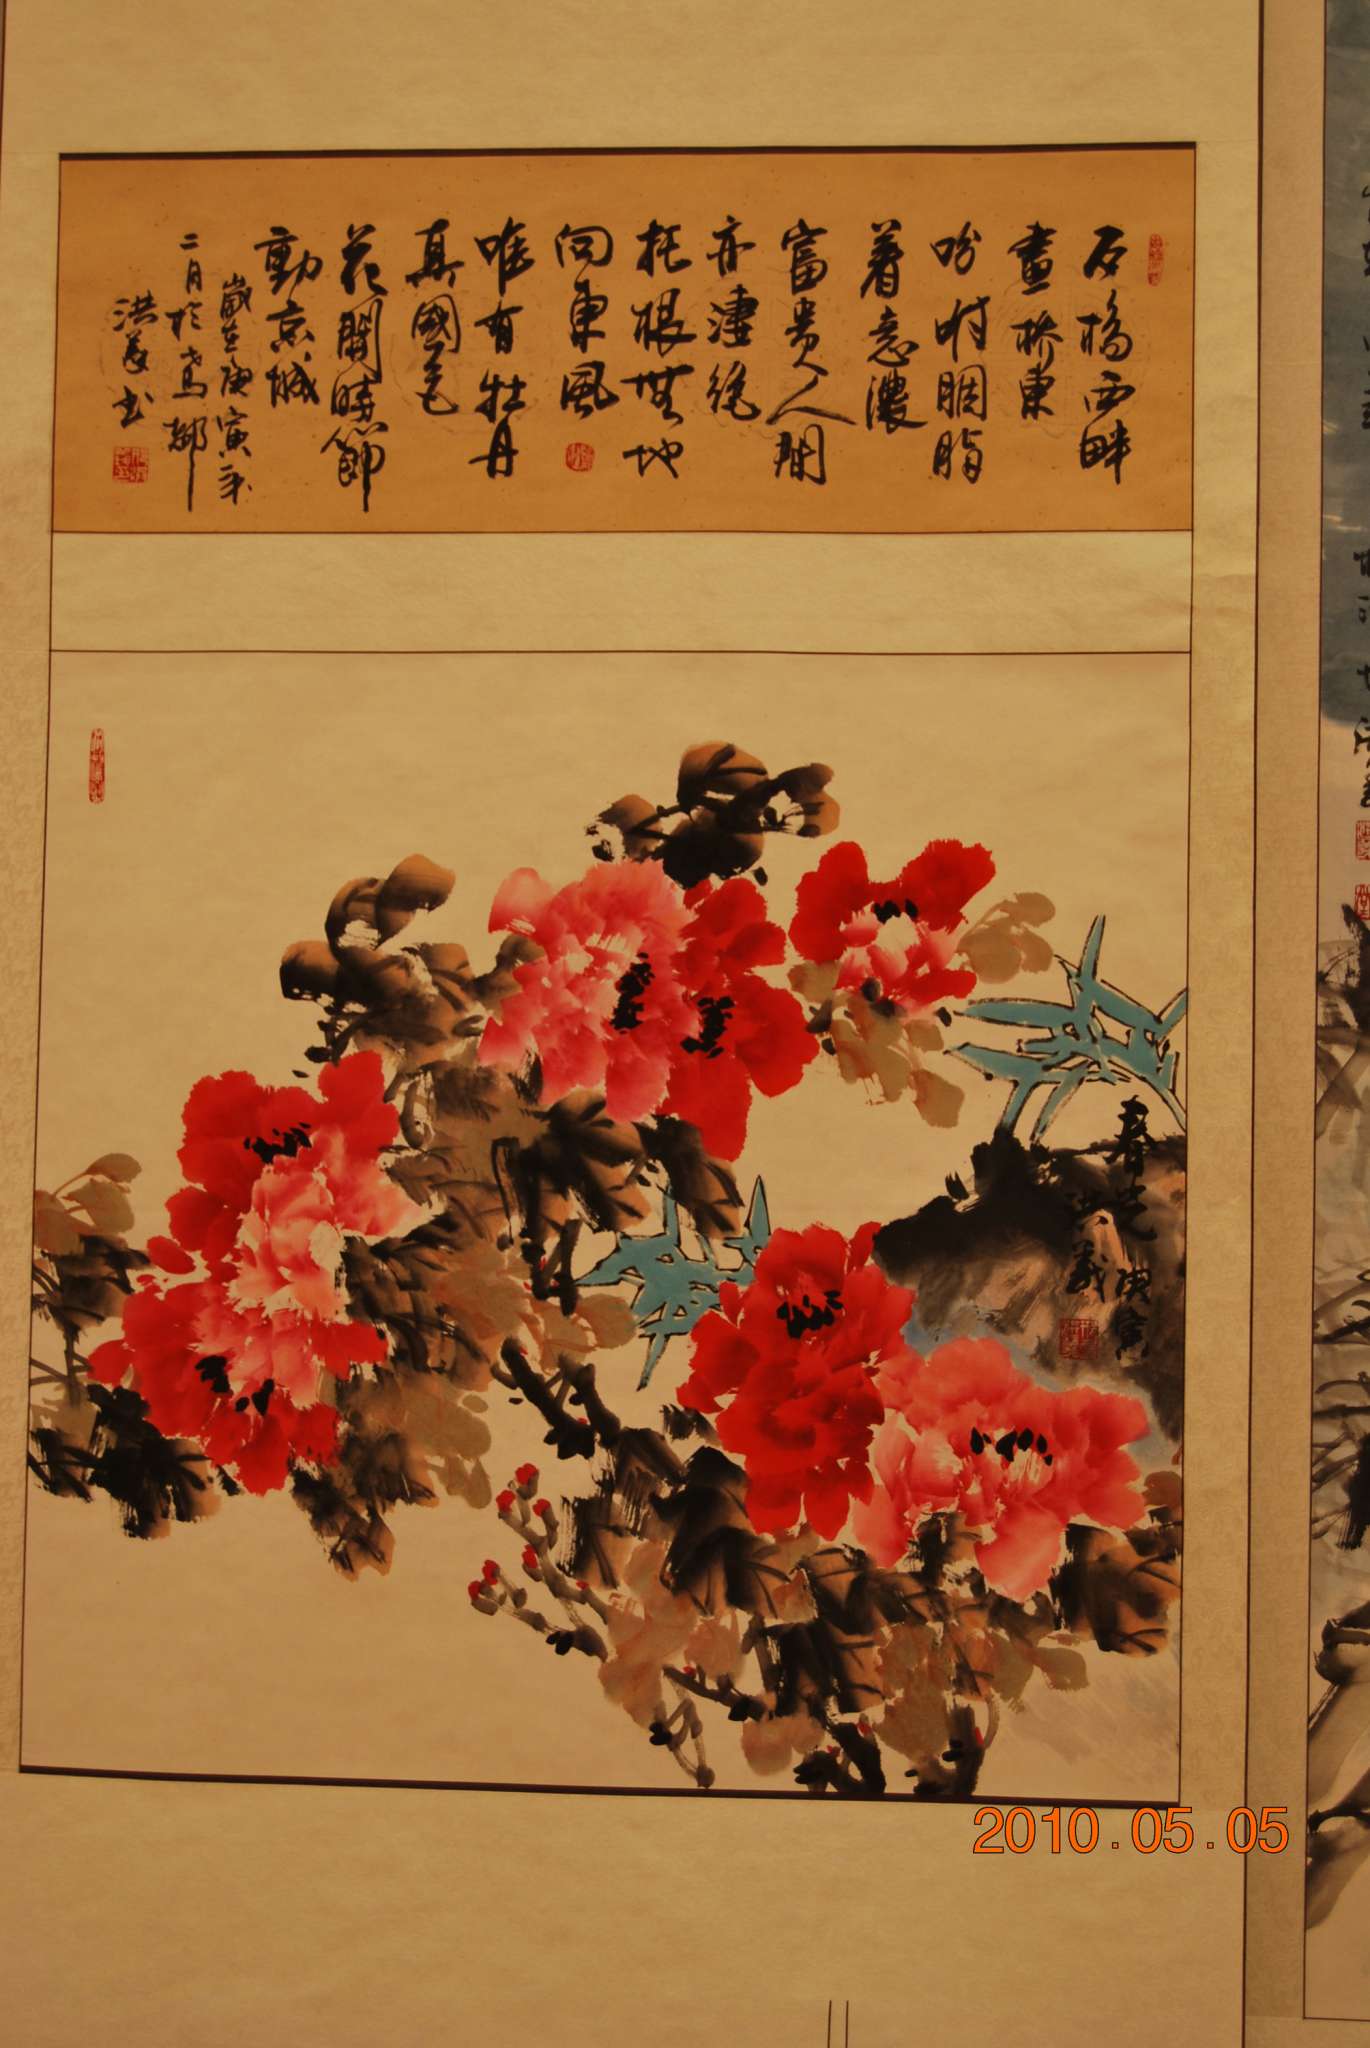 石橋西畔
畫桥東
吩咐胭脂
着意濃
富贵人間
亦凄絕
托根無地
问東風
唯有牡丹
真國色
花開時節
動京城
歲在庚寅年
二月於堯都
洪義书
春光 庚寅
洪義
2010.05.05